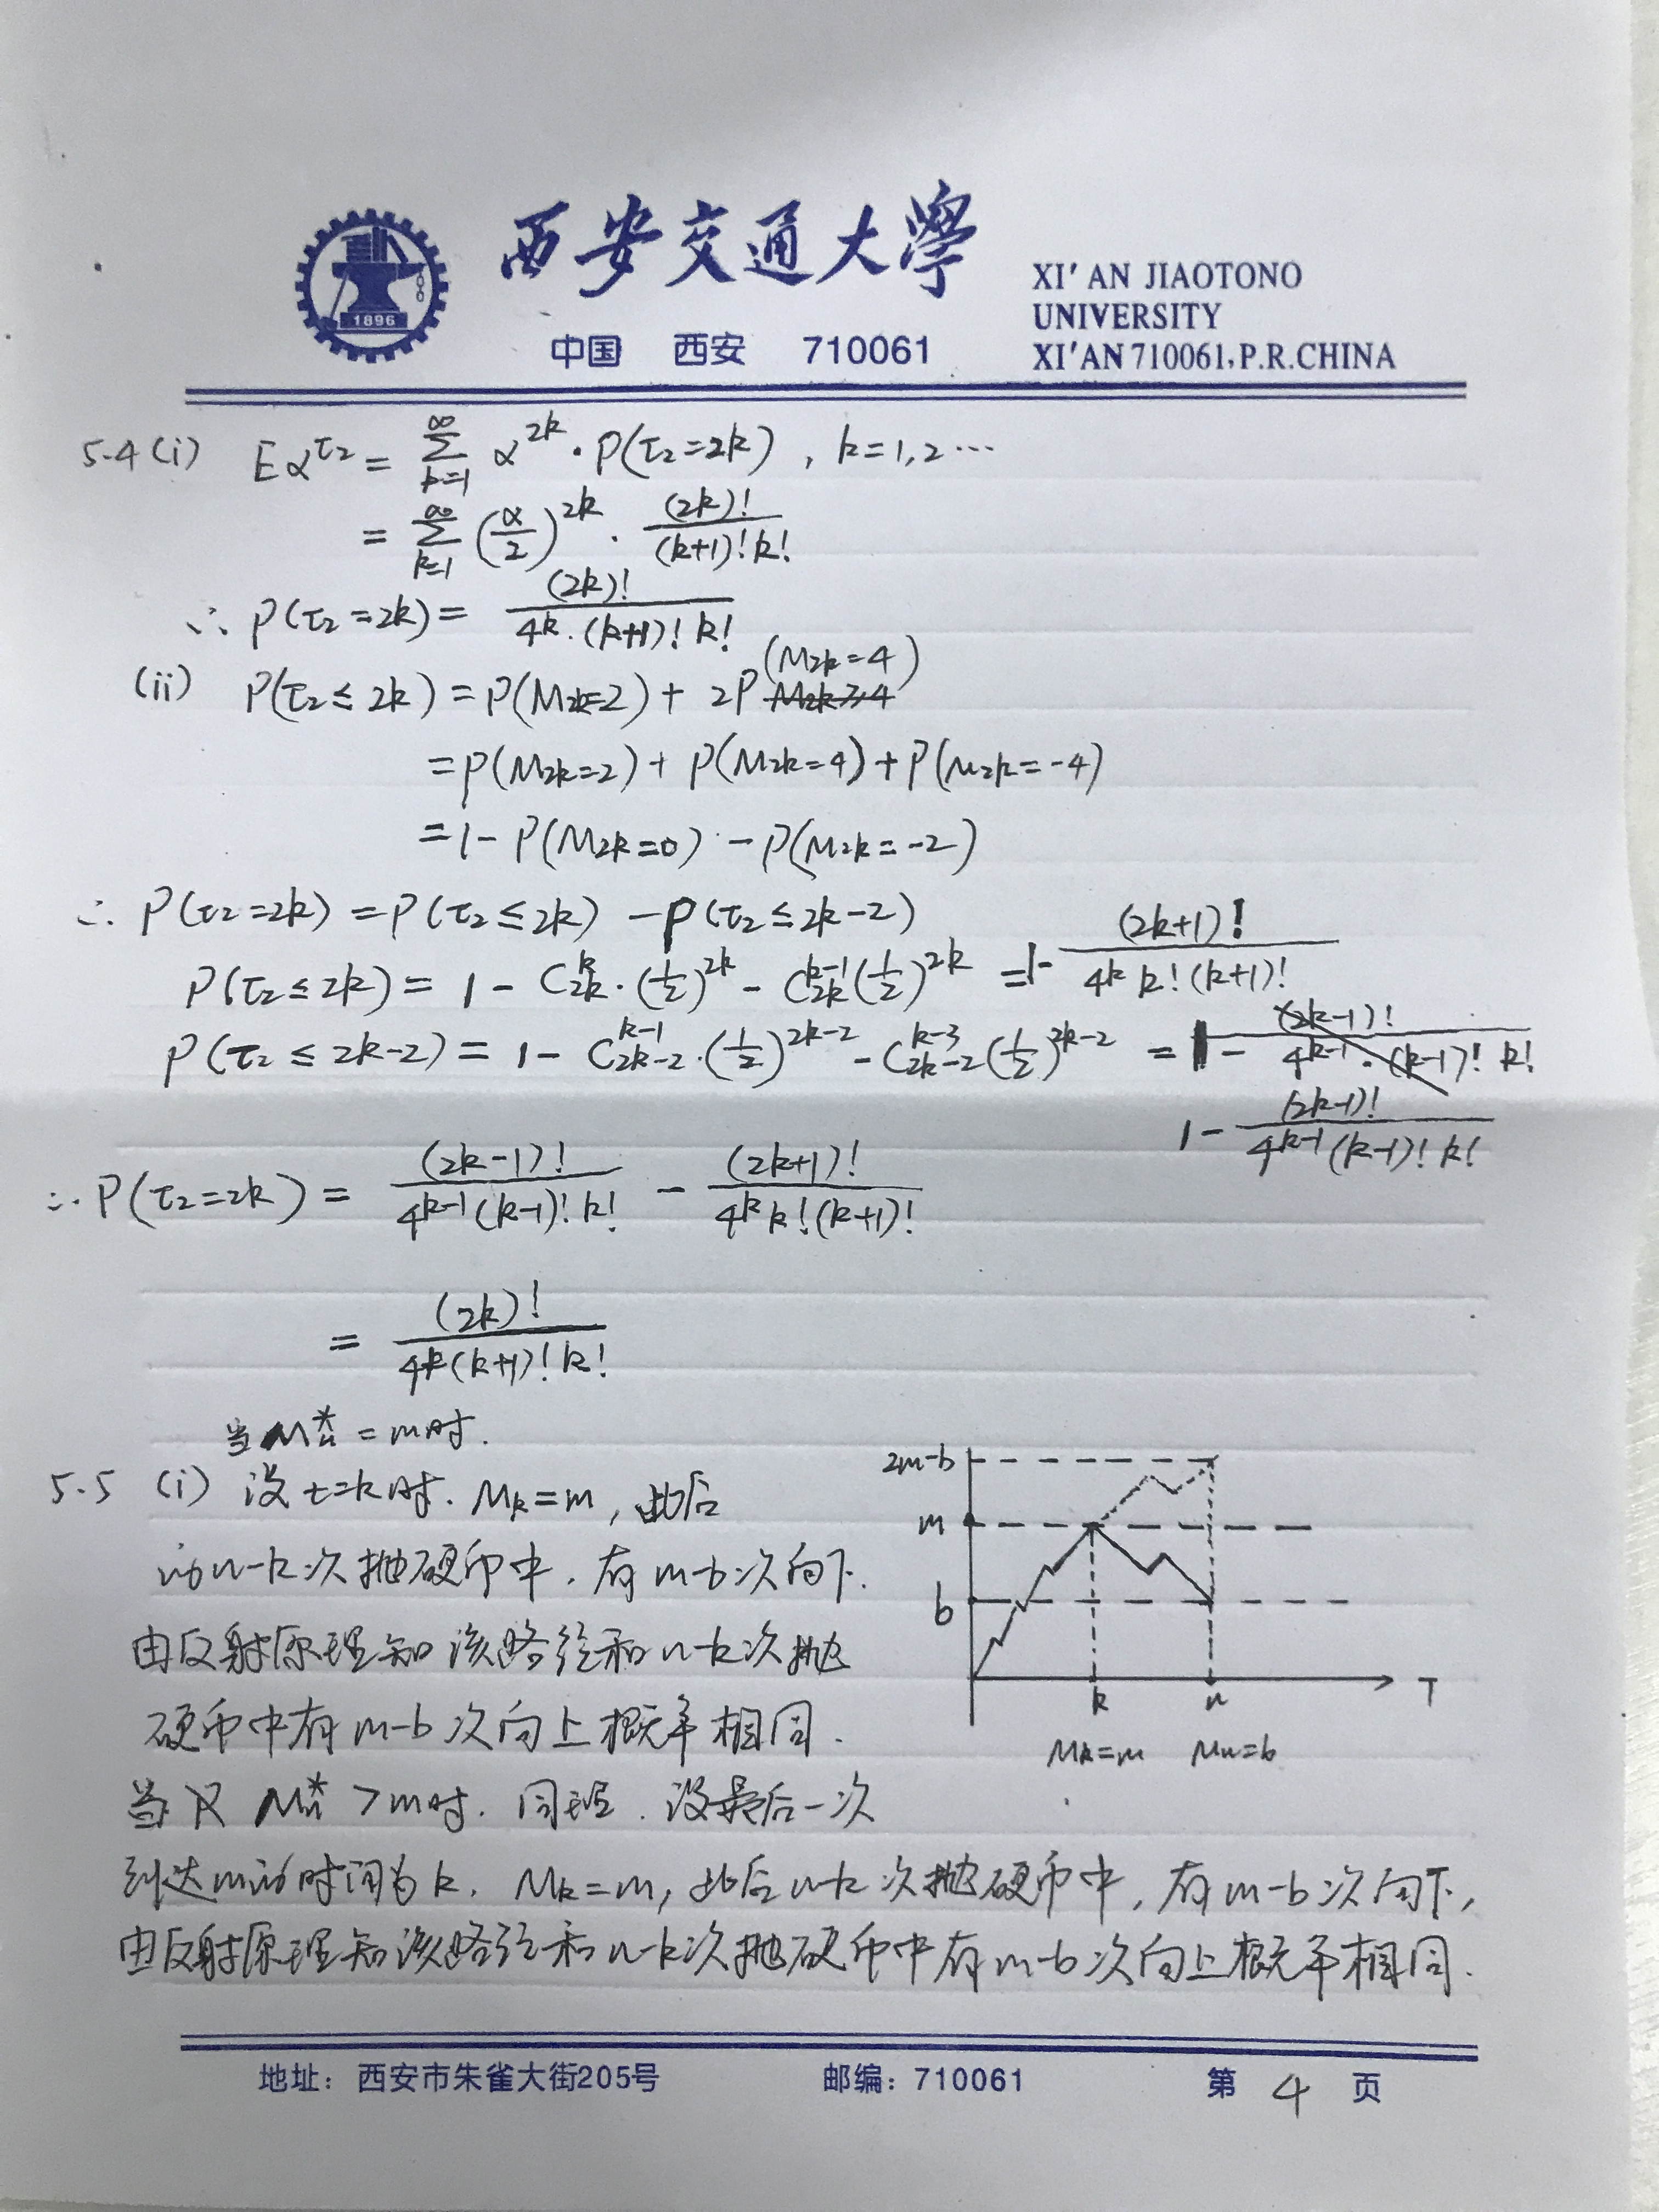 西安交通大學
XI'AN JIAOTONO
UNIVERSITY
XI'AN 710061, P.R.CHINA
中国 西安 710061
1896
5.4 (i) Eα^{τ₂} = \sum_{k=1}^{∞} α^{2k} · P(τ₂=2k) , k=1,2 ···
= \sum_{k=1}^{∞} (\frac{α}{2})^{2k} · \frac{(2k)!}{(k+1)! k!}
∴ P(τ₂=2k) = \frac{(2k)!}{4^k · (k+1)! k!}
(ii) P(τ₂ ≤ 2k) = P(M_{2k}=2) + 2P (M_{2k}=4)
= P(M_{2k}=2) + P(M_{2k}=4) + P(M_{2k}=-4)
= 1 - P(M_{2k}=0) - P(M_{2k}=-2)
∴ P(τ₂=2k) = P(τ₂ ≤ 2k) - P(τ₂ ≤ 2k-2)
P(τ₂ ≤ 2k) = 1 - C_{2k}^{k} · (\frac{1}{2})^{2k} - C_{2k}^{k-1} (\frac{1}{2})^{2k} = 1 - \frac{(2k+1)!}{4^k k! (k+1)!}
P(τ₂ ≤ 2k-2) = 1 - C_{2k-2}^{k-1} · (\frac{1}{2})^{2k-2} - C_{2k-2}^{k-3} (\frac{1}{2})^{2k-2} = 1 - \frac{(2k-1)!}{4^{k-1} · (k-1)! k!}
1 - \frac{(2k-1)!}{4^{k-1} (k-1)! k!}
∴ P(τ₂=2k) = \frac{(2k-1)!}{4^{k-1} (k-1)! k!} - \frac{(2k+1)!}{4^k k! (k+1)!}
= \frac{(2k)!}{4^k (k+1)! k!}
当 M_n^* = m时.
5.5 (i) 设 t=k时. M_k=m , 此后
的n-k次抛硬币中, 有m-b次向下.
由反射原理知该路径和n-k次抛
硬币中有m-b次向上概率相同.
当 M_n^* > m时. 同理. 设最后一次
到达m的时间为k. M_k=m, 此后n-k次抛硬币中, 有m-b次向下,
由反射原理知该路径和n-k次抛硬币中有m-b次向上概率相同.
2m-b
m
b
k n T
M_k=m M_n=b
地址：西安市朱雀大街205号 邮编：710061 第 4 页